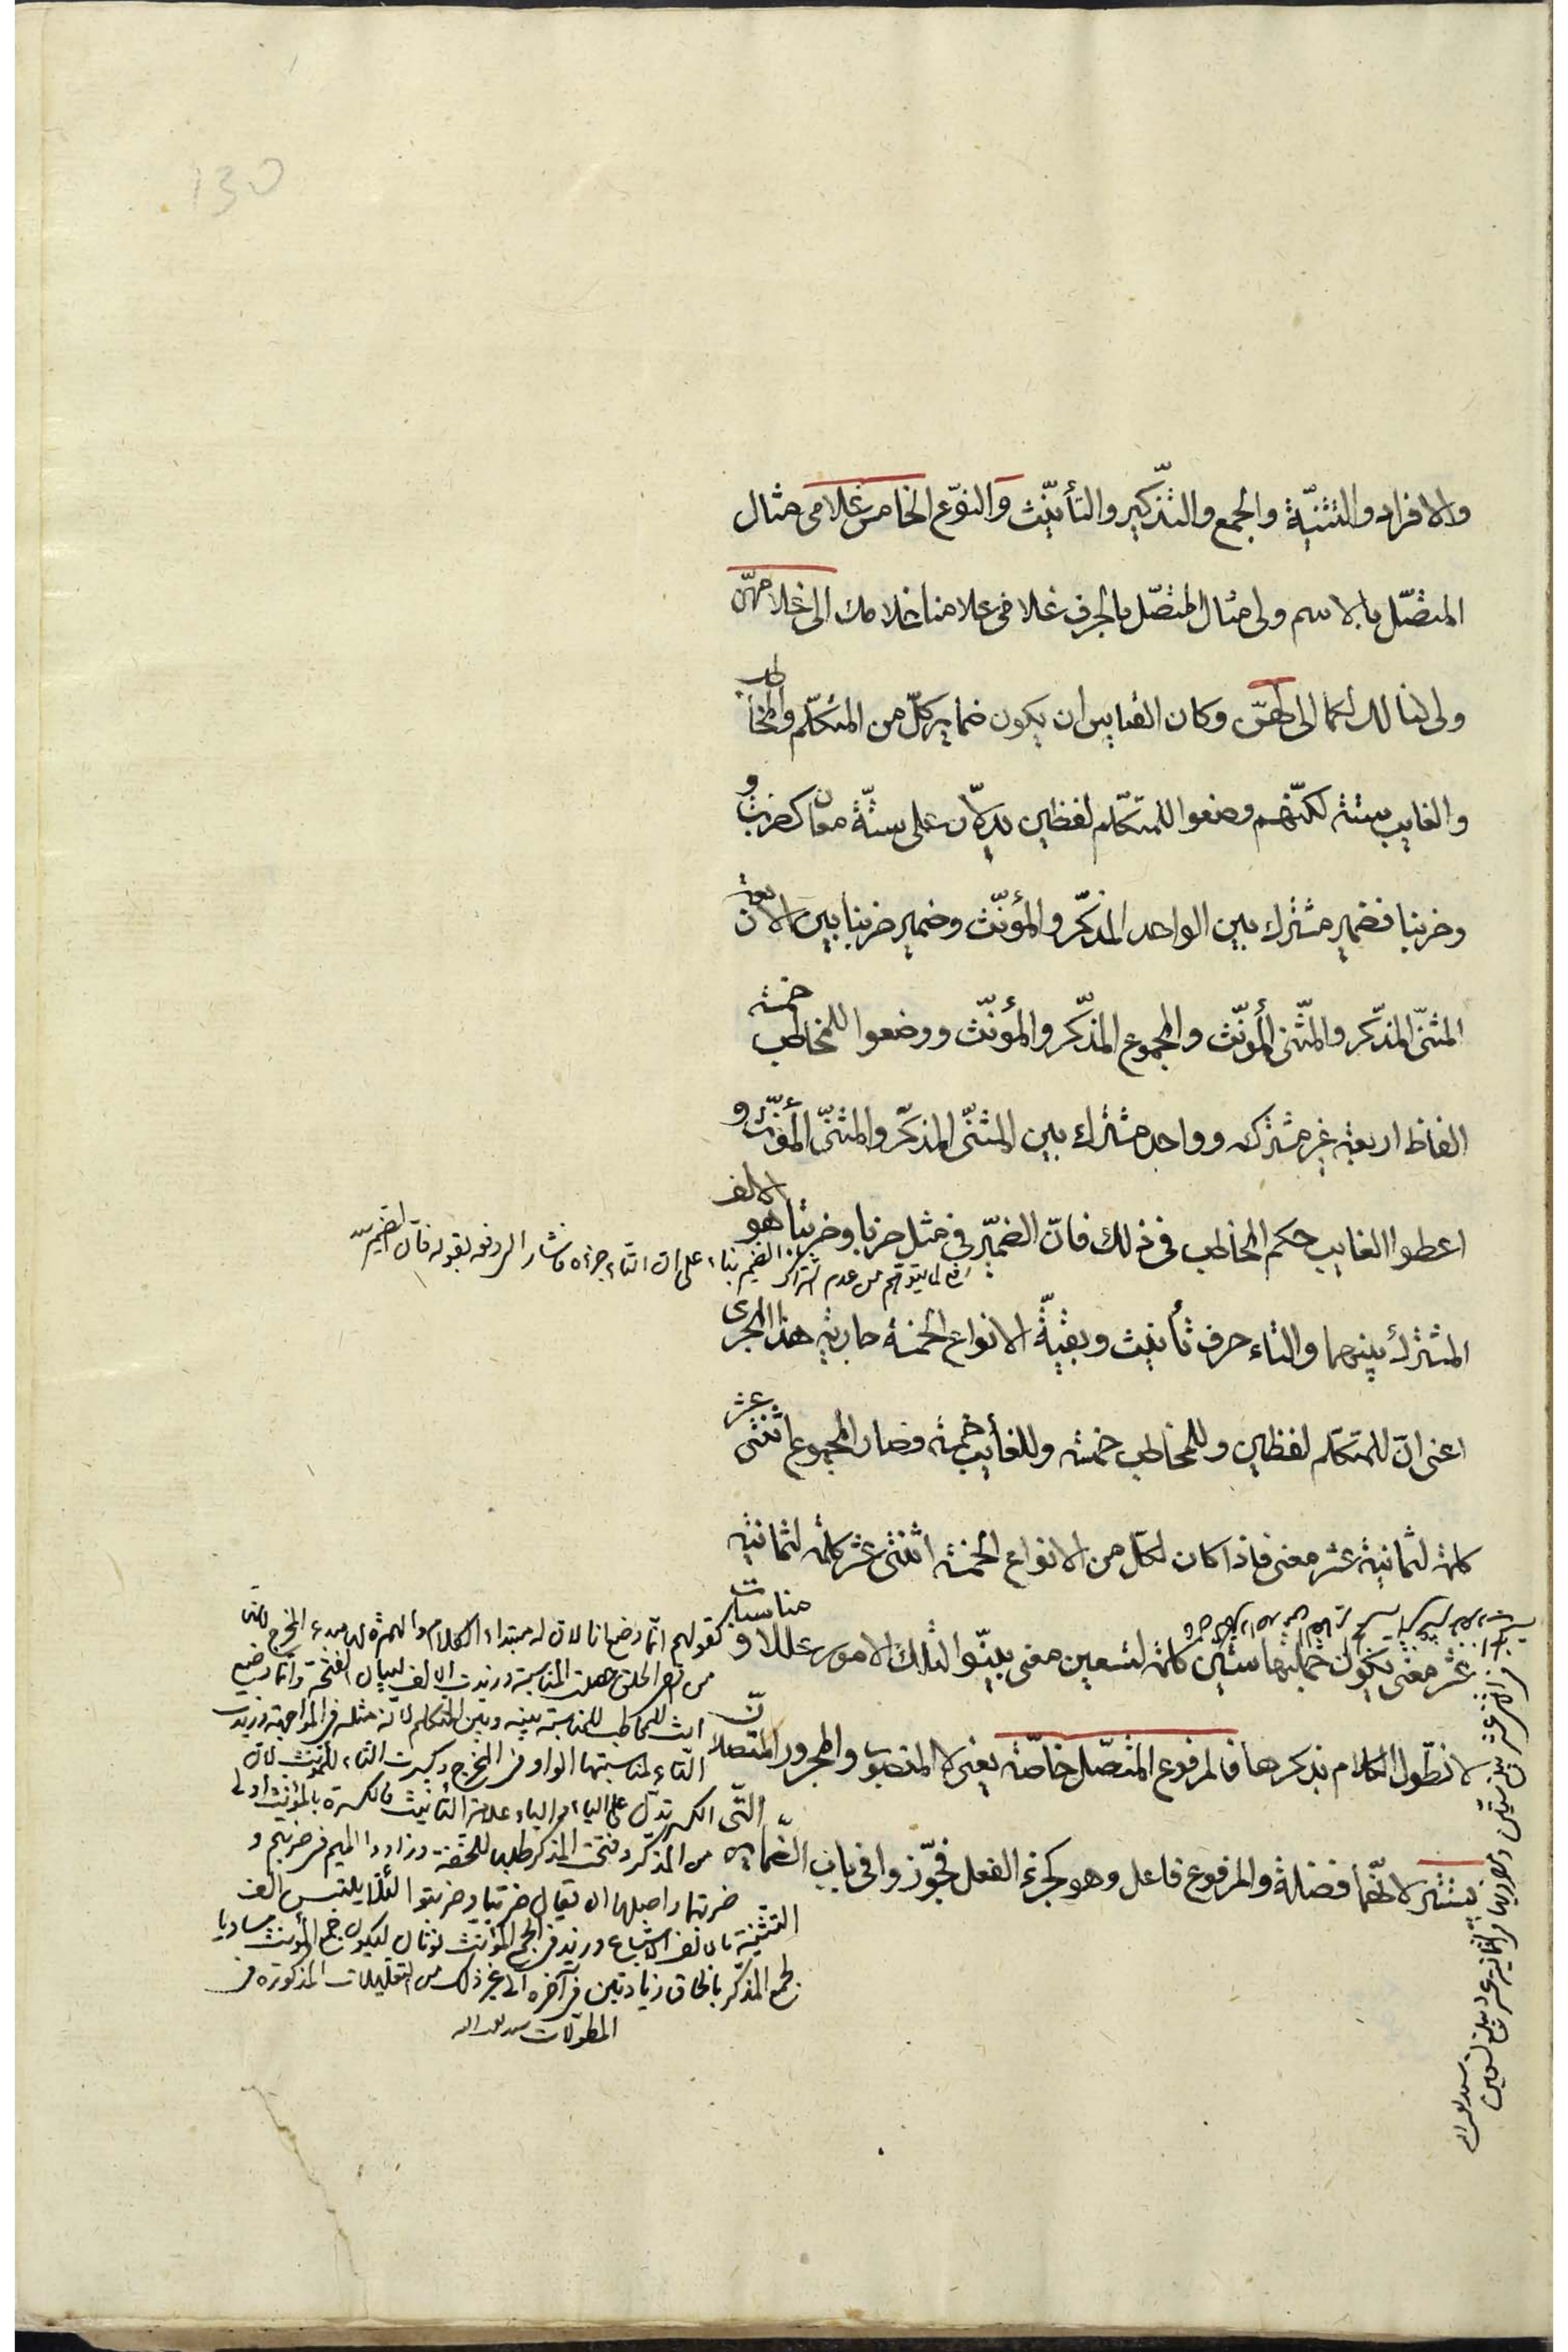 130
والافراد والتثنيّة والجمع والتذكير والتأنيّث والنوّع الخامس غلامى مثال
المتصّل بالاسم ولى مثال المتصّل بالحرف غلامى غلامنا غلامك الى غلامهنّ
ولى لنا لك لكما الى لهنّ وكان القياس ان يكون ضماير كلّ من المتكلّم والمخاطب
والغايب ستة لكنّهم وضعوا للمتكلّم لفظين يدلّان على ستّة معان كضربت و
وضربنا فضمير مشترك بين الواحد المذكّر والمؤنّث وضمير ضربنا بين الاربعة
المثنىّ المذكّر والمثنّى المؤنّث والمجموع المذكّر والمؤنّث ووضعوا للمخاطب خمسة
الفاظ اربعة غير مشتركه وواحد مشترك بين المثنّى المذكّر والمثنّى المؤنّث و
اعطوا الغايب حكم المخاطب فى ذلك فانّ الضميّر فى مثل ضربا وضربتا هو الالف
رفع لما يتوهّم من عدم اشتراك الضمير بناء على ان التاء جزءه فاشار الى دفعه بقوله فان الضمير
المشترك بينهما والتاء حرف تأنيث وبقيّة الانواع الخمسة جارية هذا المجرى
اعنى انّ للمتكلّم لفظين وللمخاطب خمسة وللغايب خمسة فصار المجموع اثنتى عشر
كلمة لثمانية عشر معنى فاذا كان لكل من الانواع الخمسة اثنتى عشر كلمة لثمانية
عشر معنى يكون جملتها ستين كلمة لتسعين معنى بينّوا لتلك الامور عللا و مناسبات
لا نطّول الكلام بذكرها فالمرفوع المتصّل خاصّة يعنى لا المنصوب والمجرور المتصلان
يستتر لانّهما فضلة والمرفوع فاعل وهو كجزء الفعل فجوّزوا فى باب الضماير
كقولهم انّما وضع انا لان له مبتداء الكلام والهمزة لها مبدء المخرج لانها
من اقصى الحلق جعلت المناسبة وزيدت الالف لبيان الفتحة وانما وضع
انت للمخاطب للمناسبة بينه وبين المتكلم لانه مثله فى المواجهة وزيدت
التاء لمناسبتها الواو فى المخرج وكسرت التاء للمؤنث لان
التّى الكسر تدلّ على الياء والياء علامة التأنيث فالكسرة بالمؤنث اولى
من المذكر وفتحت المذكر طلبا للخفة وزادوا الميم فى ضربتم و
ضربتما واصلها ان يقال ضربتا وضربتوا لئلا يلتبس الف
التثنية بالف الاشباع وزيد فى الجمع المؤنث نونان ليكون جمع المؤنث مساويا
لجمع المذكّر بالحاق زيادتين فى آخره الى غير ذلك من التعليلات المذكورة فى
المطولات